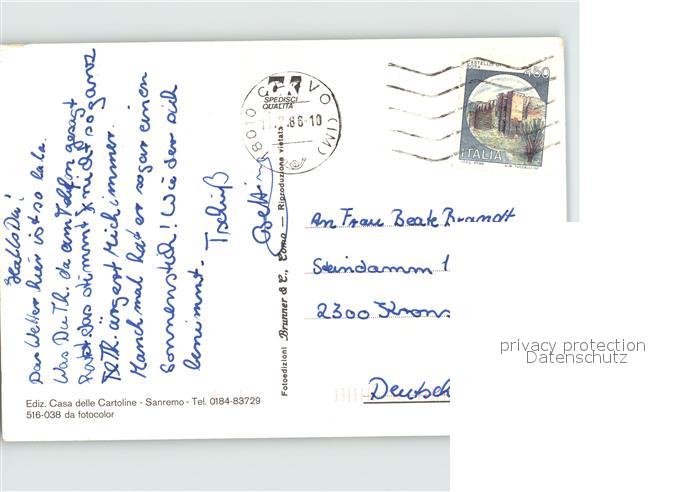 Hallo Du!
Das Wetter hier ist so lala.
Was Du Th. da am Telefon gesagt
hast das stimmt nicht so ganz
Th. ärgert mich immer.
Manchmal hat er sogar einen
Sonnenstich! Wie der sich
benimmt.
Tschüß
Bettina
VO (IM)
SPEDISCI
QUALITÀ
86-10
450
ITALIA
Fotoedizioni Brunner & C., Como — Riproduzione vietata
An Frau Beate Brandt
Steindamm 1
2300 Krons
Deutsch
privacy protection
Datenschutz
Ediz. Casa delle Cartoline - Sanremo - Tel. 0184-83729
516-038 da fotocolor